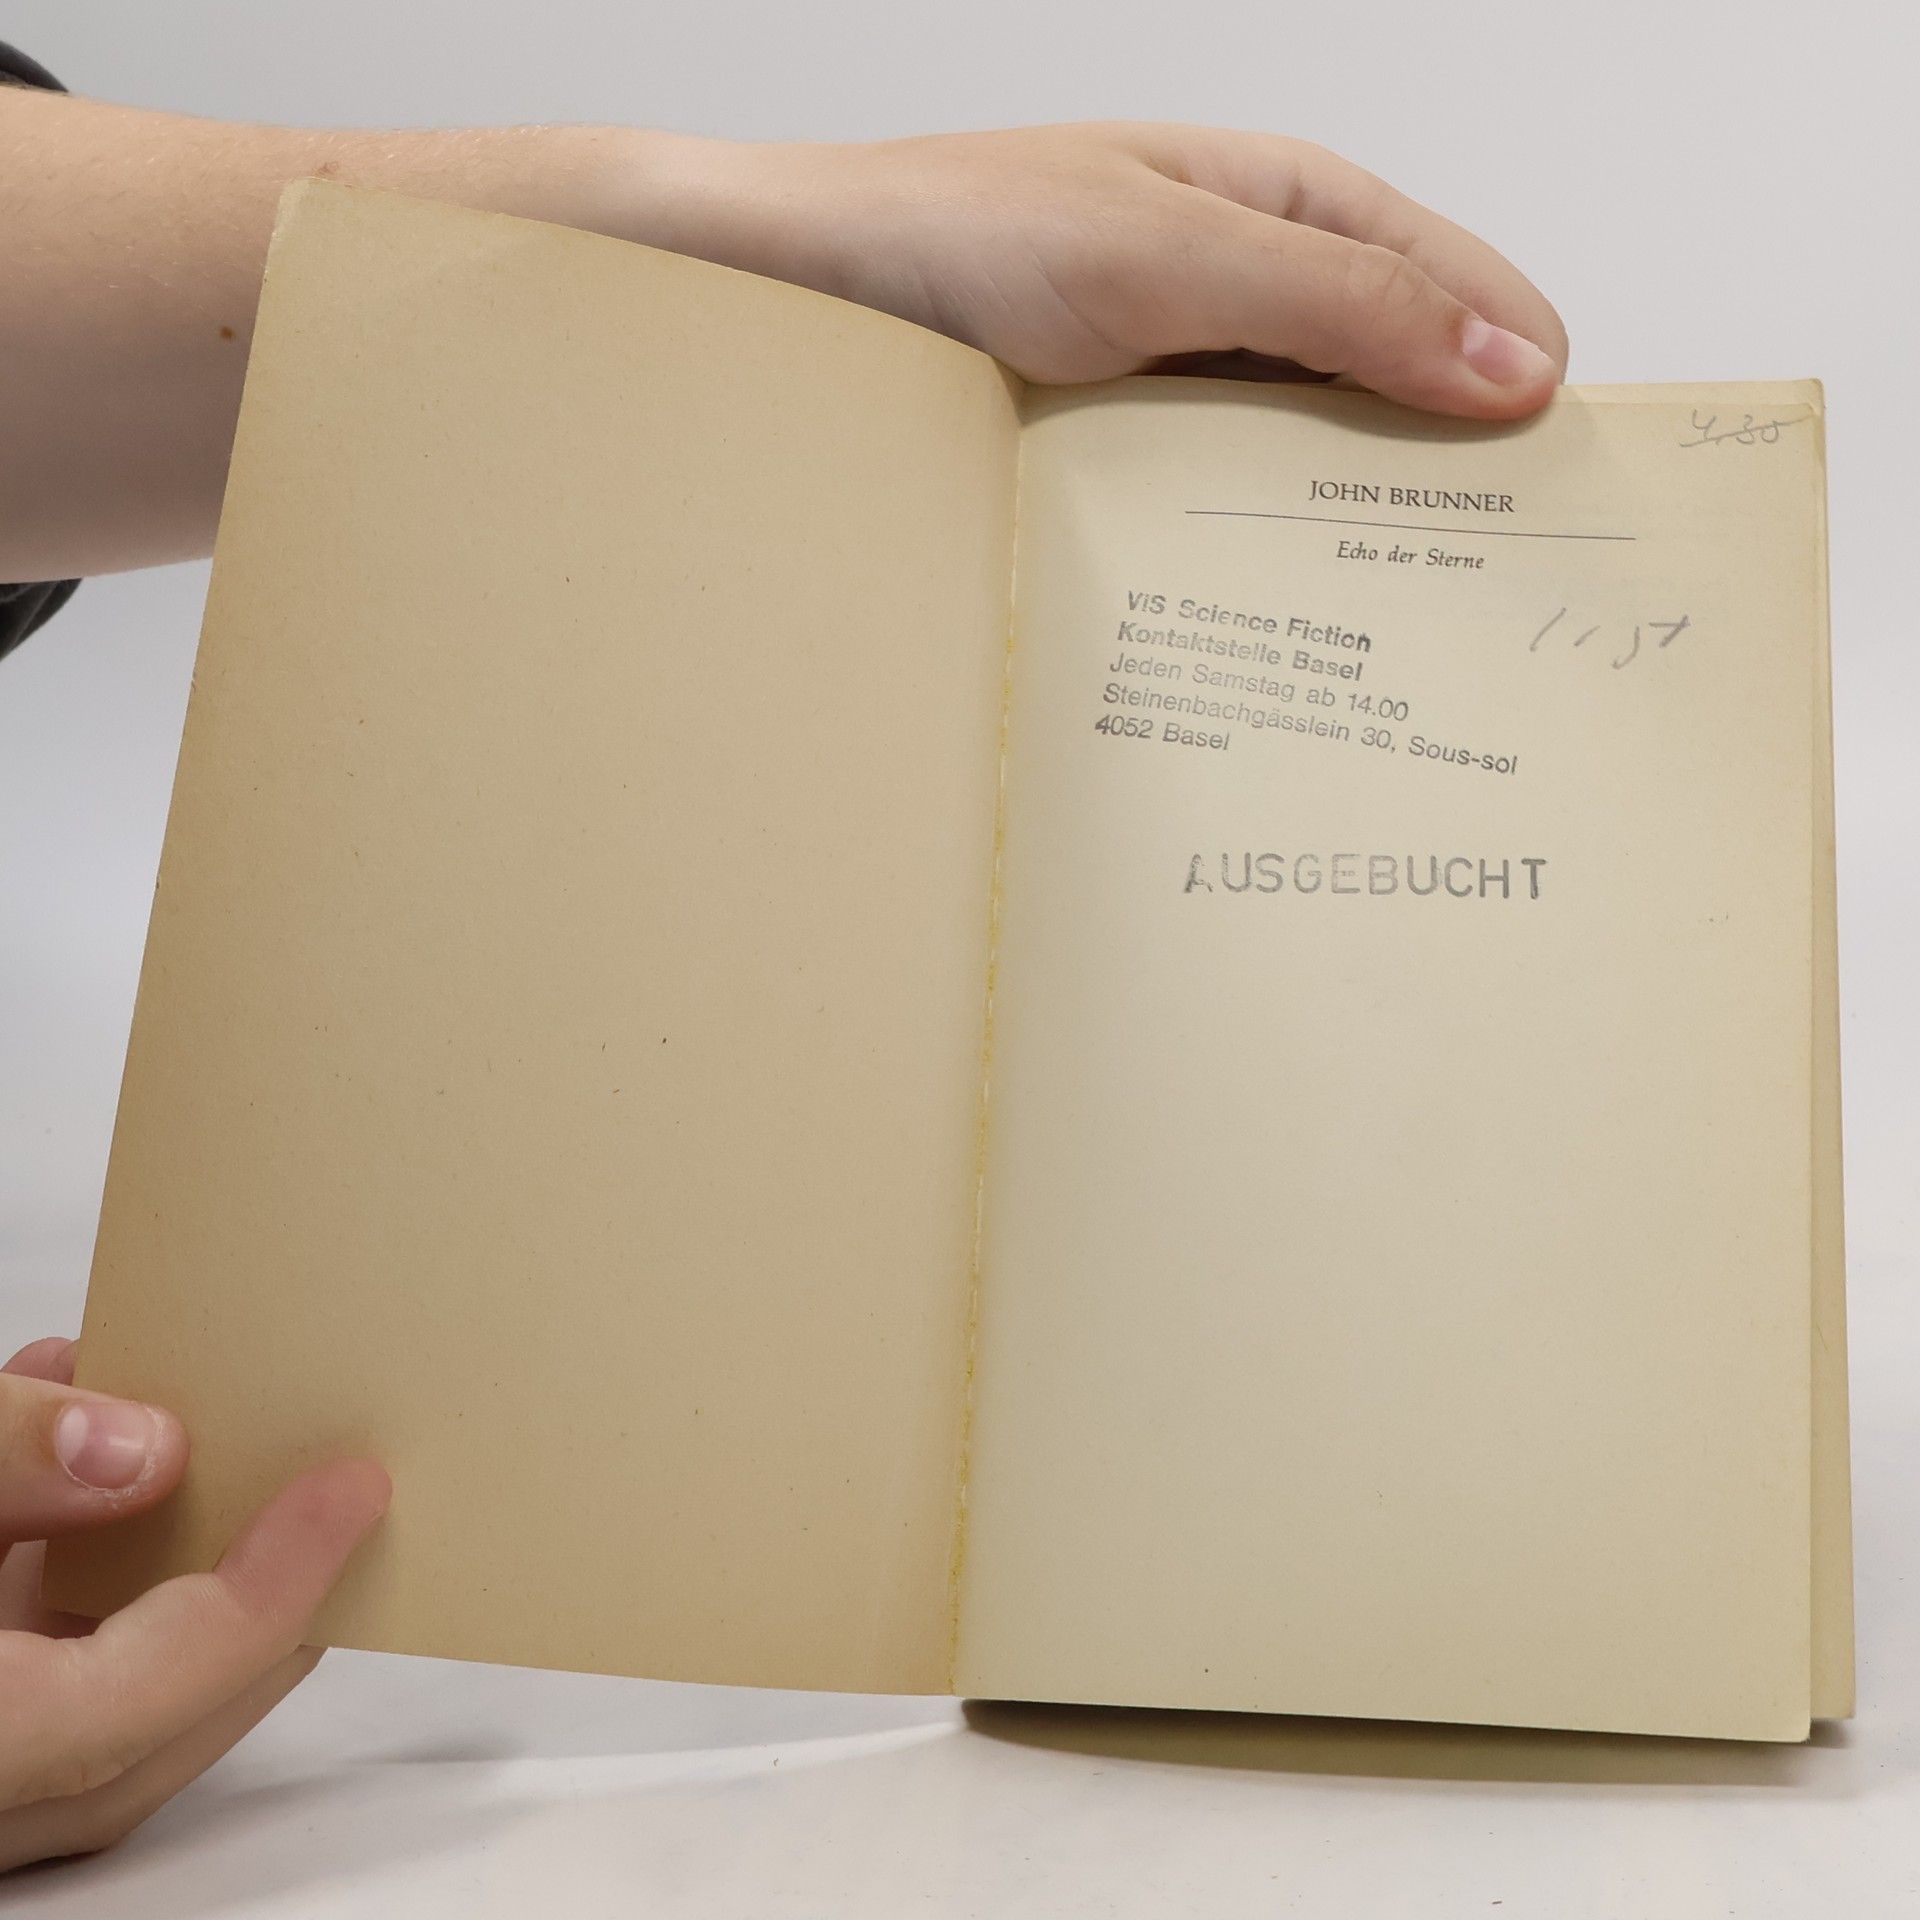 4.30
JOHN BRUNNER
Echo der Sterne
VIS Science Fiction
Kontaktstelle Basel
Jeden Samstag ab 14.00
Steinenbachgässlein 30, Sous-sol
4052 Basel
AUSGEBUCHT